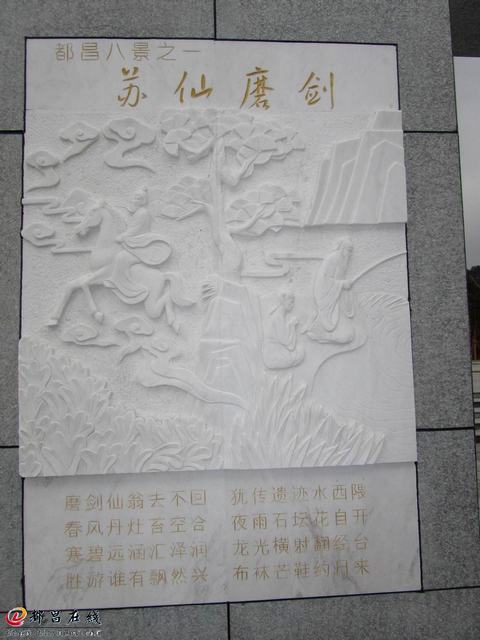 都昌八景之一
苏仙磨剑
磨剑仙翁去不回 犹传遗迹水西隈
春风丹灶苔空合 夜雨石坛花自开
寒碧远涵汇泽润 龙光横射翻经台
胜游谁有飘然兴 布袜芒鞋约月来
都昌在线